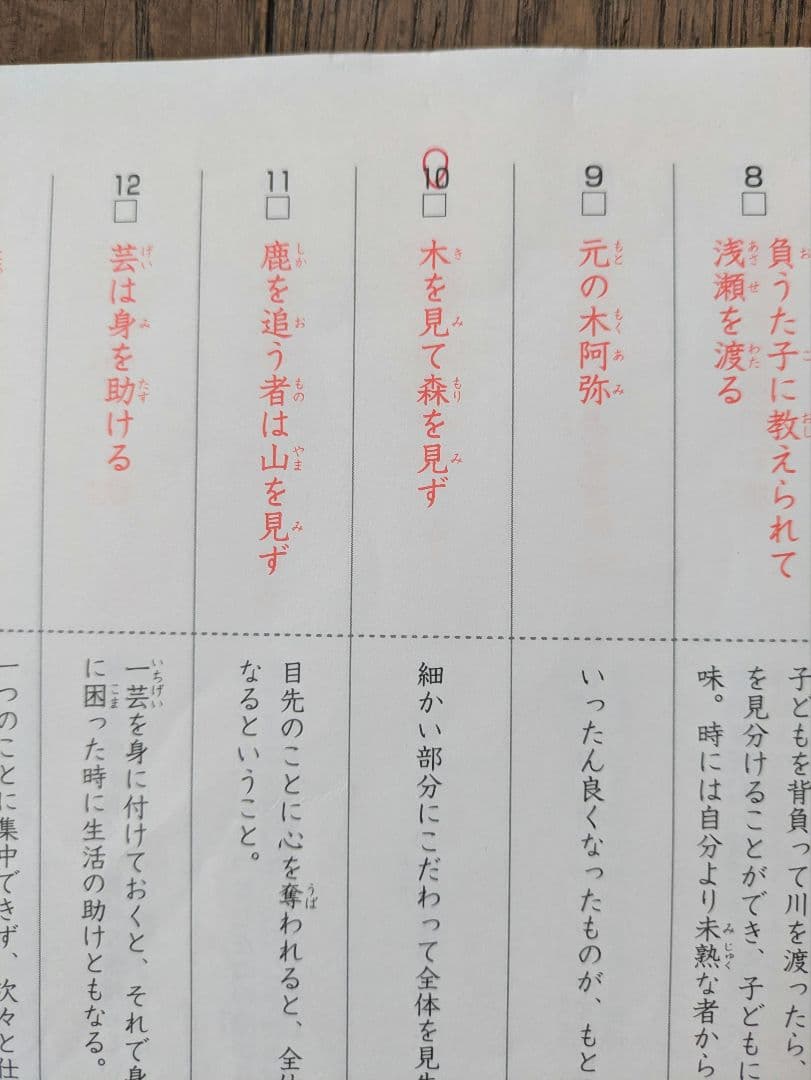 8
負うた子に教えられて
浅瀬を渡る
子どもを背負って川を渡ったら、
を見分けることができ、子どもに
味。時には自分より未熟な者から
9
元の木阿弥
いったん良くなったものが、もと
10
木を見て森を見ず
細かい部分にこだわって全体を見
11
鹿を追う者は山を見ず
目先のことに心を奪われると、全
なるということ。
12
芸は身を助ける
一芸を身に付けておくと、それで身
に困った時に生活の助けともなる。
一つのことに集中できず、次々と仕